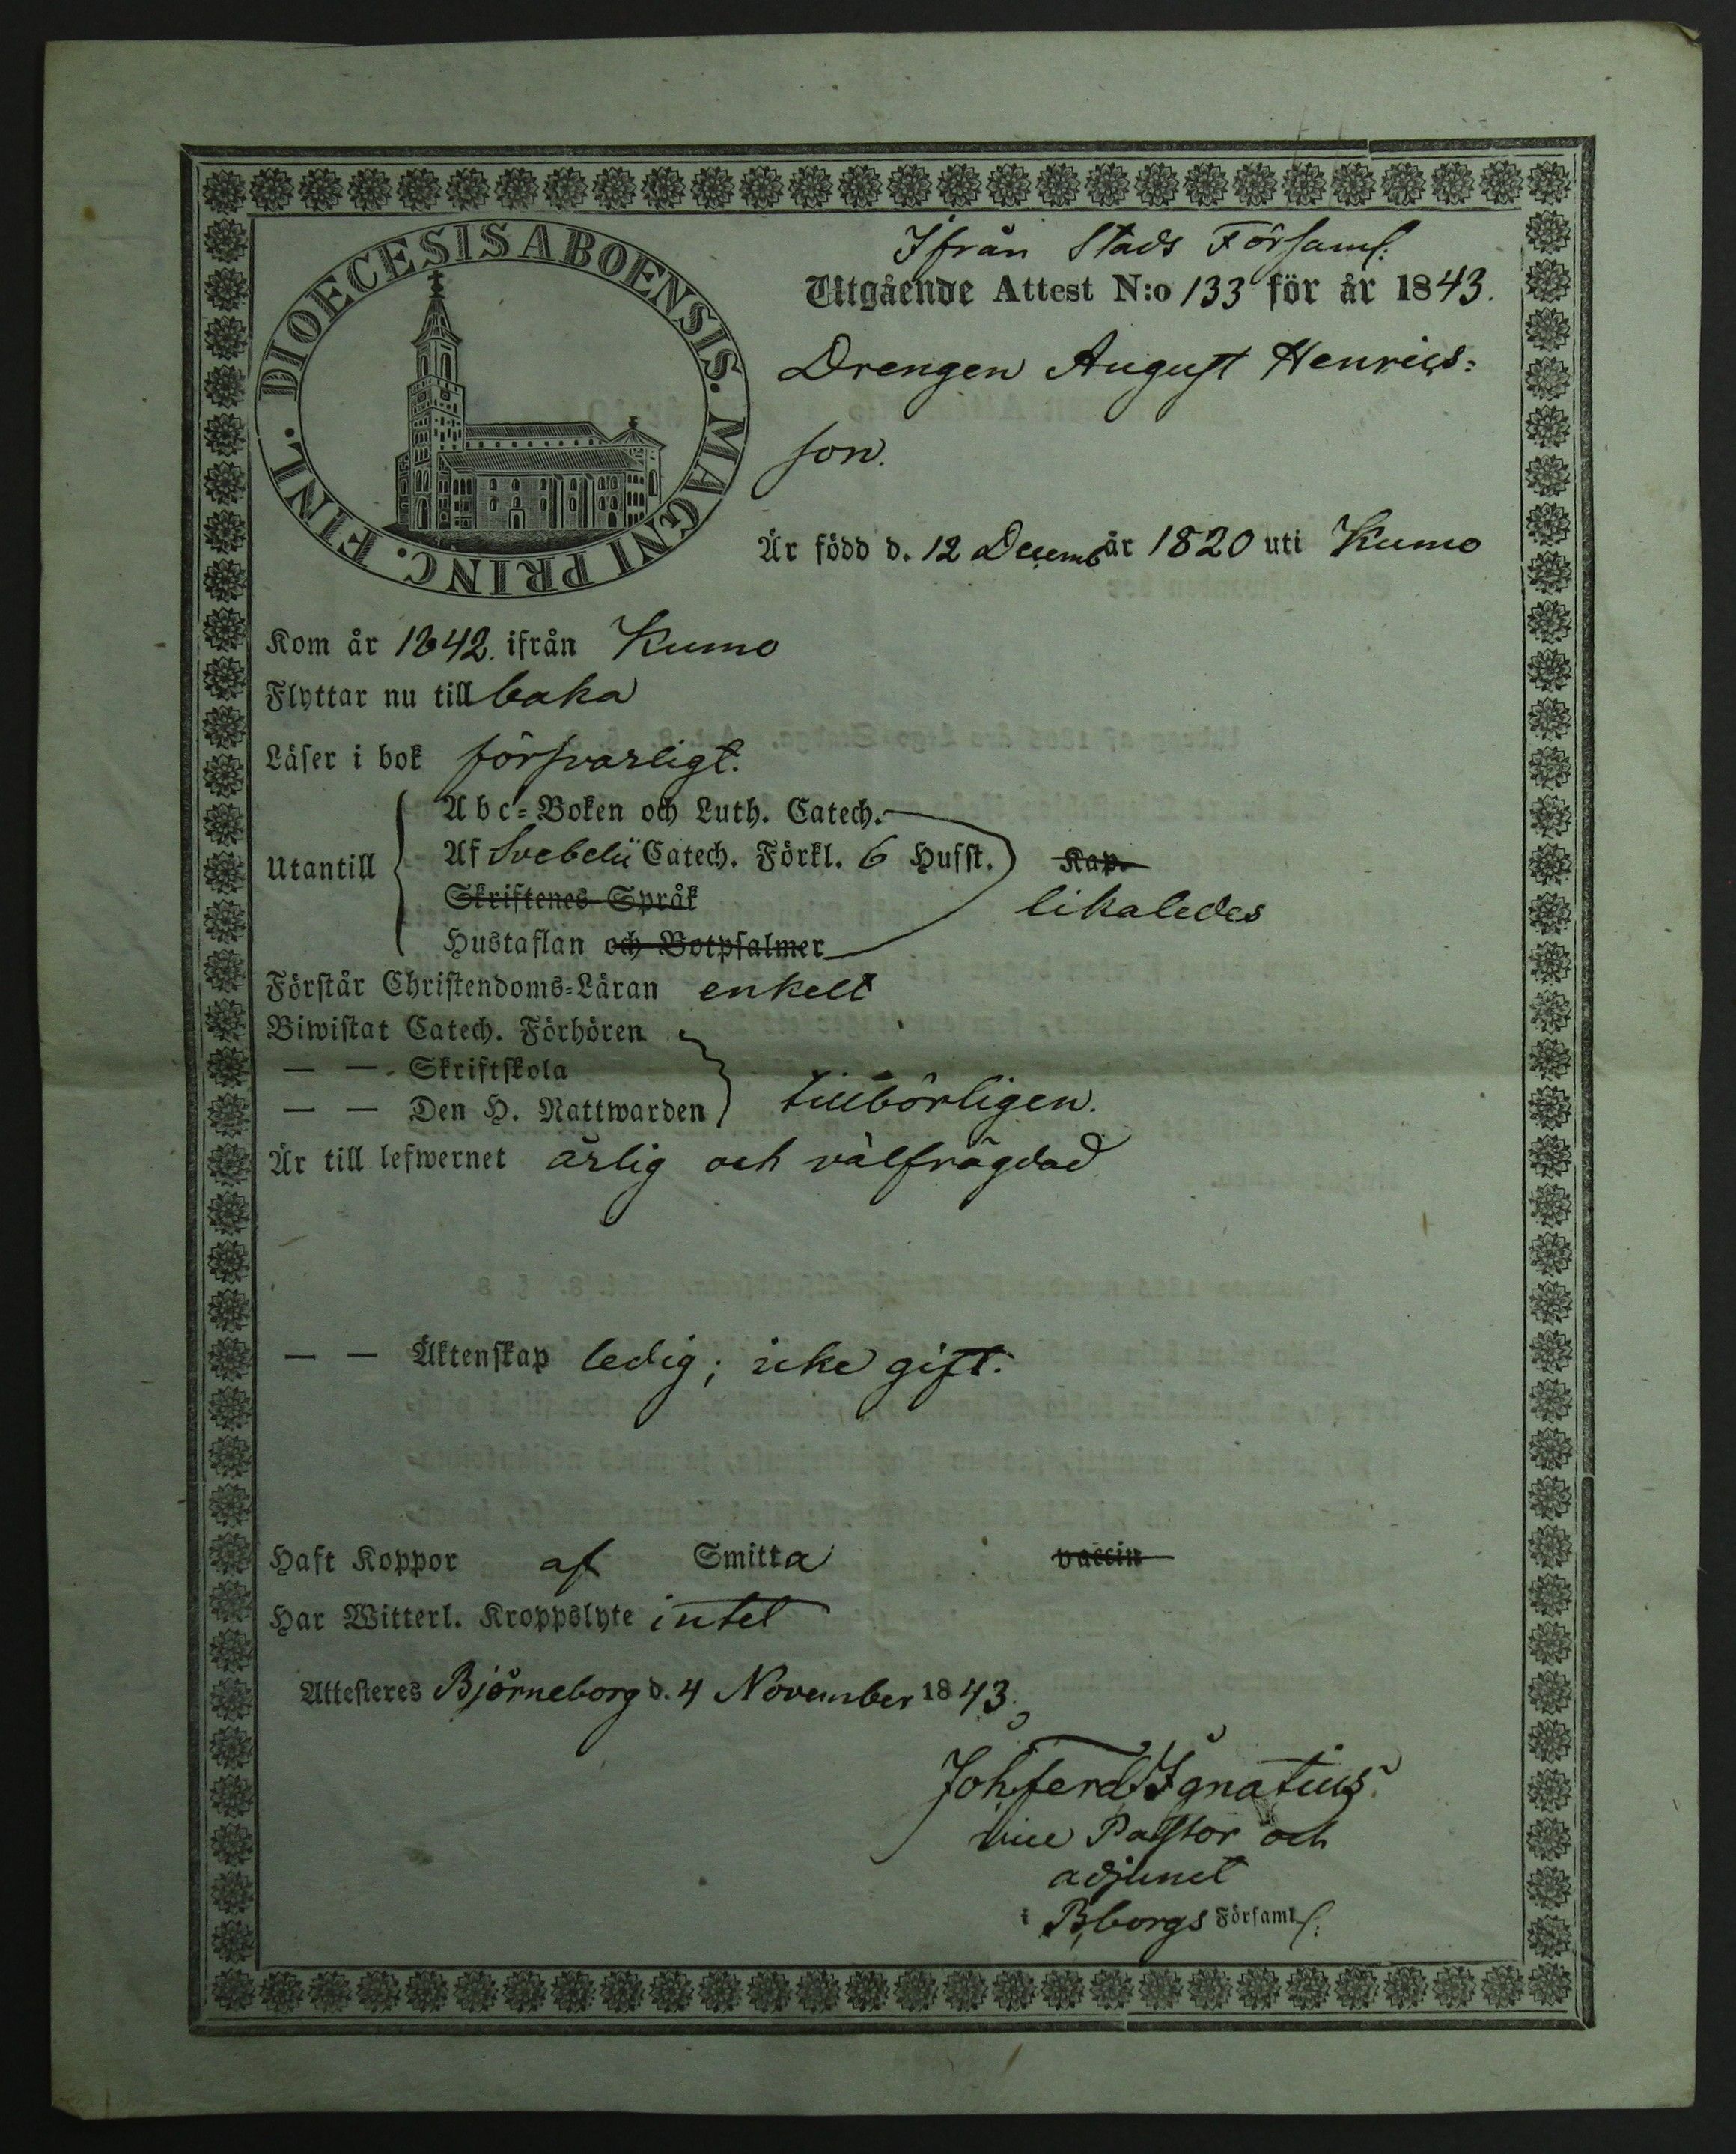 DIOECESIS ABOENSIS. MAGNI PRINC. FINL.
Ifrån Stads Församl.
Utgående Attest N:o 133 för år 1843.
Drengen August Henrics=
son.
Är född d. 12 Decemb år 1820 uti Kumo
Kom år 1842. ifrån Kumo
Flyttar nu till baka
Läser i bok försvarligt.
Abc=Boken och Luth. Catech.
Utantill Af Svebelii Catech. Förkl. 6 Hufst. Kap.
Skriftenes Språk likaledes
Hustaflan och Botpsalmer
Förstår Christendoms=Läran enkelt
Biwistat Catech. Förhören
— — Skriftskola
— — Den H. Nattwarden tillbörligen.
Är till lefwernet ärlig och välfrägdad
— — Äktenskap ledig; icke gift.
Haft Koppor af Smitta vaccin
Har Witterl. Kroppslyte intet
Attesteres Björneborg d. 4 November 1843.
Joh Ferd Ignatius.
vice Pastor och
adjunct
i Bborgs Församl.